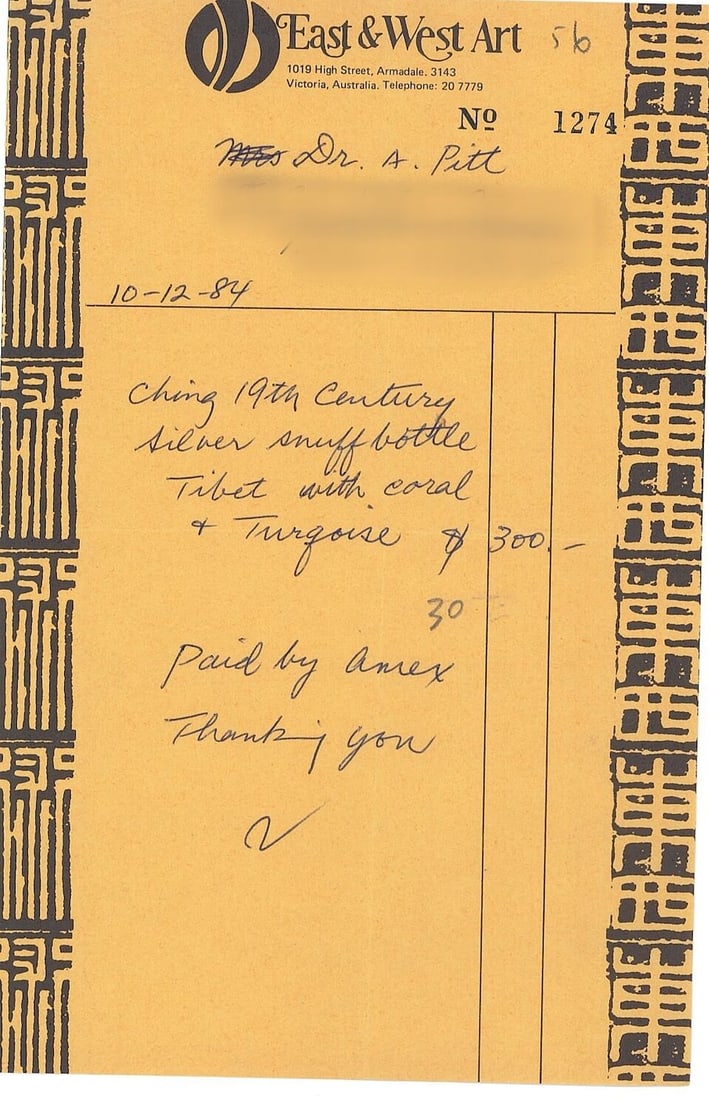 East & West Art 56
1019 High Street, Armadale. 3143
Victoria, Australia. Telephone: 20 7779
Nº 1274
Mrs Dr. A. Pitt
10-12-84
Ching 19th Century
silver snuff bottle
Tibet with coral
+ Turqoise $ 300.-
30
Paid by amex
Thanking you